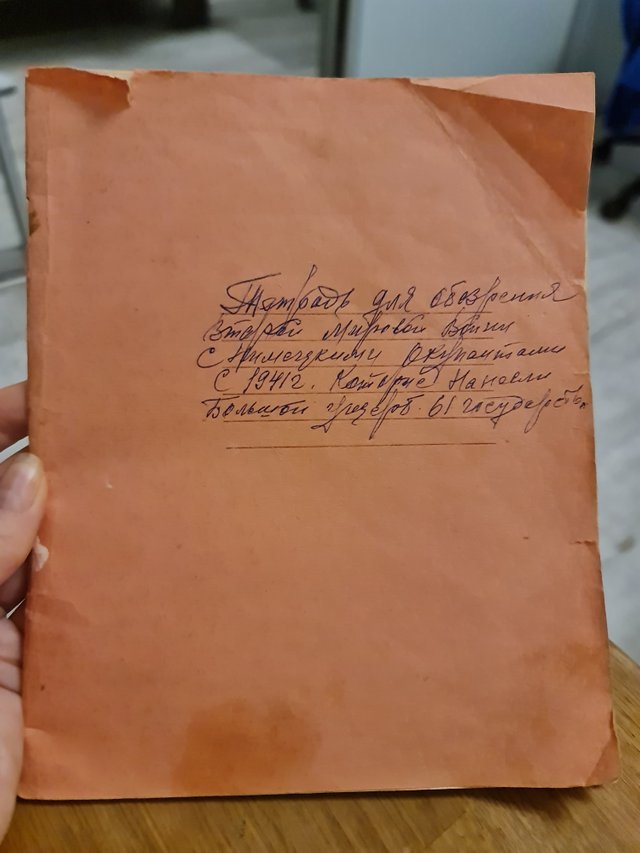 Тетрадь для обозрения
второй мировой войни
с Нимецкими Окупантами
с 1941г. Которые Нанесли
Большой ущерб. 61 государств.